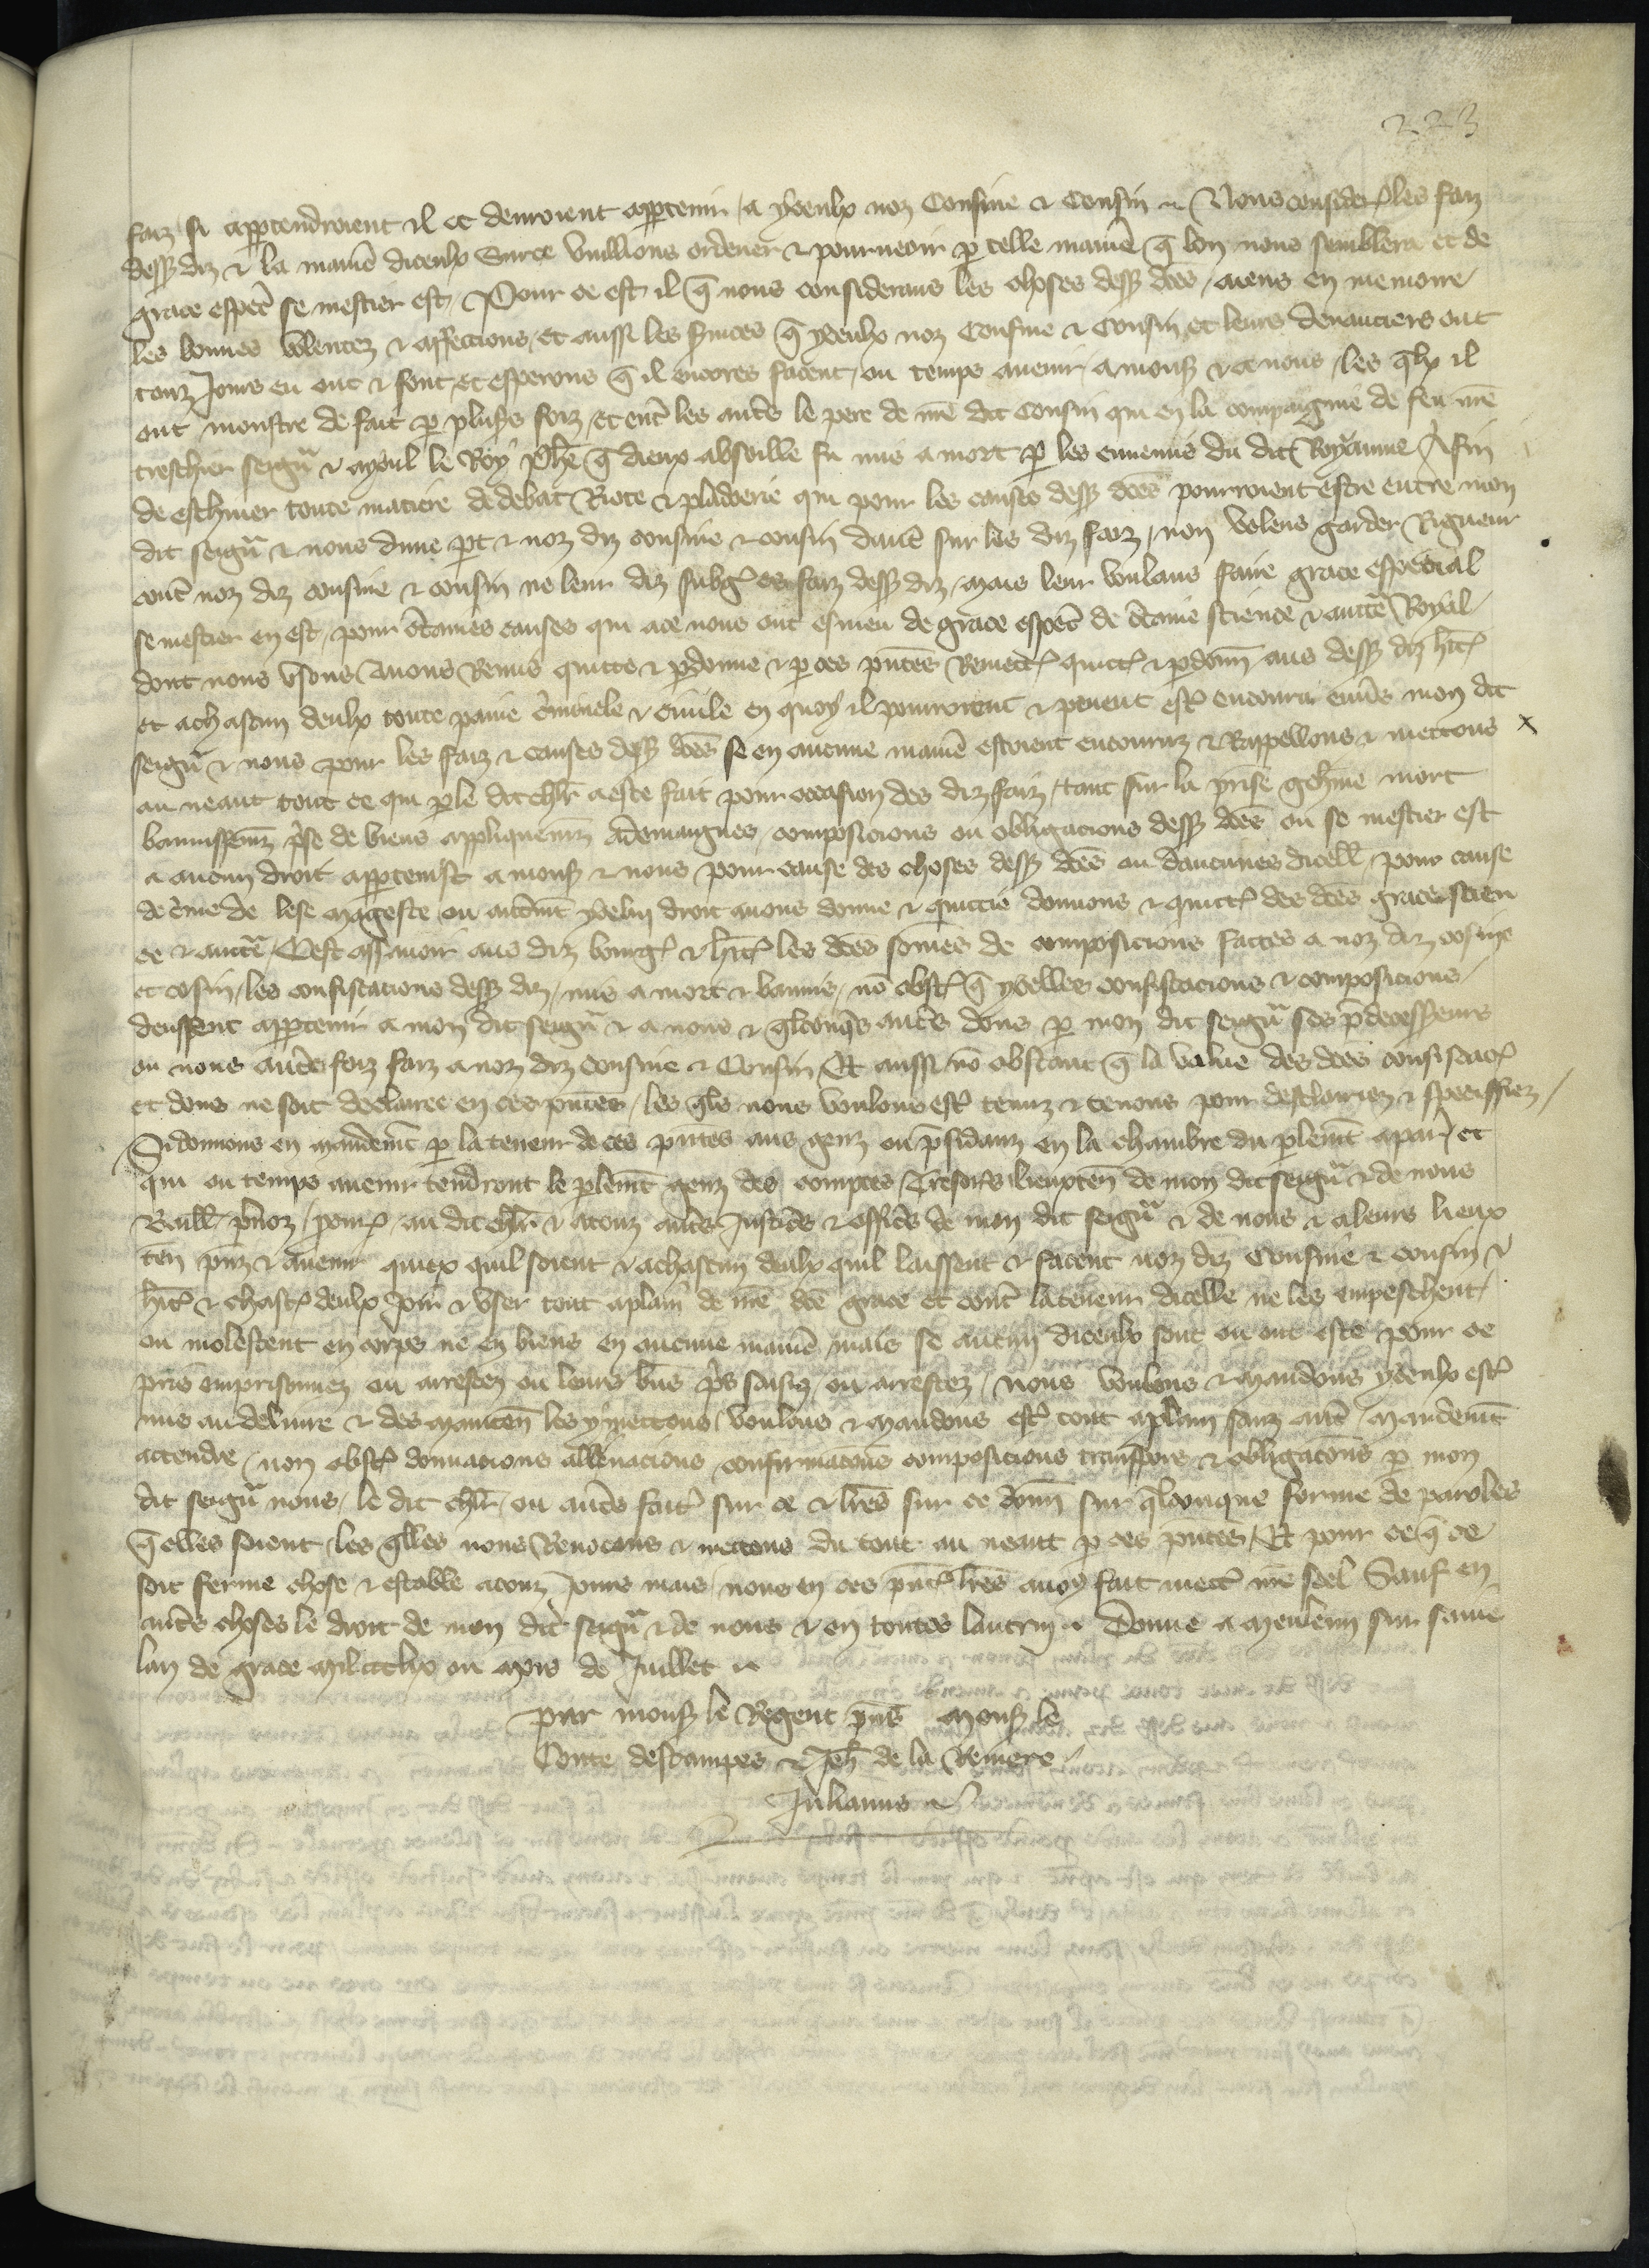 223
faiz si appartendroient il et devroient appartenir a yceulx noz Cousine et Cousin Nous consider les faiz
dess diz et la maniē diceulx Surce vuillions ordener et pourveoir p telle maniē q̄ bon nous semblera et de
grace especl se mestier est Pour ce est il q̄ nous considerans les choses dess dc̄es aiens en memoire
les bonnes volentez et affeccions et aussi les services q̄ yceulx noz Cousine et Cousin et leurs devanciers ont
touz Jours eu ont et font et esperons q̄ il encores facent ou temps avenir a mons et a nous les qlx il
ont monstre de fait p plus's foiz et ent' les aut's le pere de nr̄e dit Cousin qui en la compaignie de feu nr̄e
treschier seigñ et ayoul le Roy Phē q̄ dieux absoille fu mis a mort p les ennemis du dit Royaume Afin
de eschiver toute matiere de debat Riote et pladoerie qui pour les causes dess dc̄es pourroient estre entre mon
dit seigñ et nous dune pt et noz diz cousine et cousin dautre sur les diz faiz non volens garder Rigueur
cont' noz diz cousine et cousin ne leur diz subg' es faiz dess diz mais leur voulans faire grace especial
se mestier en est pour c'taines causes qui ace nous ont esmeu de grace especl de c'taine science et auctē Royal
dont nous usons Avons Remis quitte et pdonne et p ces pn̄tes Remett' quitt' et pdonn̄ aus dess diz hit'
et achascun deulx toute paine c'minele et civile en quoy il pourroient et pevent est' encouru envs mon dit
seigñ et nous pour les faiz et causes dess dc̄es se en aucune maniē estoient encouruz et Rappellons et mettons
au neant tout ce qui p le dit chlr̄ a este fait pour occasion des diz faiz tant sur la prise gehine mort
bannissem̄z p'se de biens appliquem̄z a demaignes composicions ou obligacions dess dc̄es ou se mestier est
et aucun droit appartenist a mons et nous pour cause des choses dess dc̄es ou daucunes dicell' pour cause
de c'me de lese mageste ou autrem̄t ycelui droit avons donne et quittie donnons et quitt' des dc̄es grace scien
ce et auctē Cest assavoir aus diz bourg' et hit' les dc̄es somes de composicions faites a noz diz cosine
et cosin les confiscacions dess diz mis a mort et bannis nō obst' q̄ ycelles confiscacions et composicions
deussent appartenir a mon dit seigñ et a nous et qlconqs aut's dons p mon dit seigñ ses pdecesseurs
ou nous aut's foiz faiz a noz diz Cousine et Cousin Et aussi nō obstant q̄ la value des dc̄es confiscac'
et dons ne soit declairee en ces pn̄tes les qls nous voulons est' tenuz et tenons pour desclairiez et speciffiez
Si donnons en mandem̄t p la teneur de ces pn̄tes aus genz ou psidanz en la chambre du plem̄t a par' et
qui ou temps avenir tendront le plem̄t genz des comptes Tresor's lieuxten̄ de mon dit seigñ et de nous
Baill' prevoz pour' au dit chlr̄ et atouz aut's Justic's et offic's de mon dit seigñ et de nous et a leurs lieux
ten̄ pn̄z et avenir quiex quil soient et achascun deulx quil laissent et facent noz diz Cousine et cousin et
hit' et chasc' deulx Joir et user tout aplain de nr̄e dc̄e grace et cont' la teneur dicelle ne les empeschent
ou molestent en corps ne en biens en aucune maniē mais se aucun diceulx sont ou ont este pour ce
pris emprisonnez ou arrestez ou leurs b'ns p's saisiz ou arrestez nous voulons et mandons yceulx est'
mis au delivre et des mainten̄ les y mettons voulons et mandons est' tout aplain sanz aut' mandem̄t
attendre non obst' donnacions allienacions confirmacōns composicions transpors et obligacōns p mon
dit seigñ nous le dit chlr̄ ou aut's fait' sur ce et lr̄es sur ce donn̄ sur qlconque forme de paroles
q̄ elles soient les qlles nous Revocons et mettons du tout au neant p ces pn̄tes Et pour ce q̄ ce
soit ferme chose et estable atouz Jours mais nous en ces pn̄t' lr̄es avons fait mett' nr̄e seel Sauf en
aut's choses le droit de mon dit seigñ et de nous et en toutes lautrui Donne a Meleun sur saine
lan de grace mil ccclix ou moys de Juillet
Par mons le Regent pn̄s Mons le
Conte destampes et Jeh̄ de la Riviere
Julianus